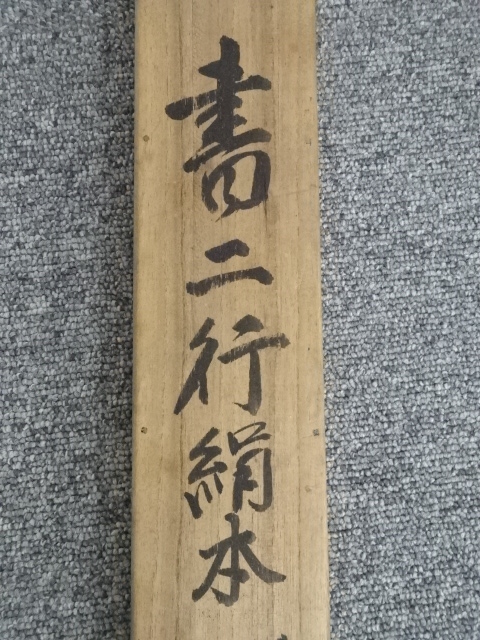 書二行絹本